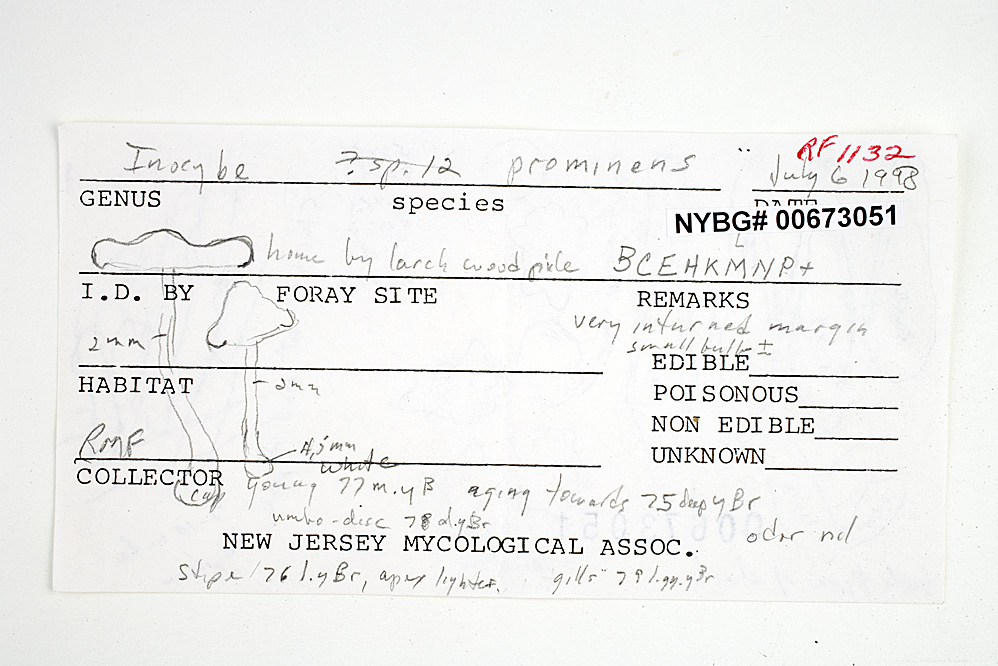 RF 1132
Inocybe ? sp. 12 prominens " July 6 1998
GENUS species DATE
NYBG# 00673051
home by larch woodpile BCEHKLMNP+
I.D. BY FORAY SITE REMARKS
very inturned margin
2mm small bulb ±
EDIBLE
HABITAT 2mm
POISONOUS
NON EDIBLE
RMF 4.5mm
white
UNKNOWN
COLLECTOR
cap young 77 m.yB aging towards 75 deep yBr
umbo-disc 78 d.yBr
NEW JERSEY MYCOLOGICAL ASSOC. odor nd
stipe 76 l.yBr, apex lighter. gills 79 l.gy.yBr